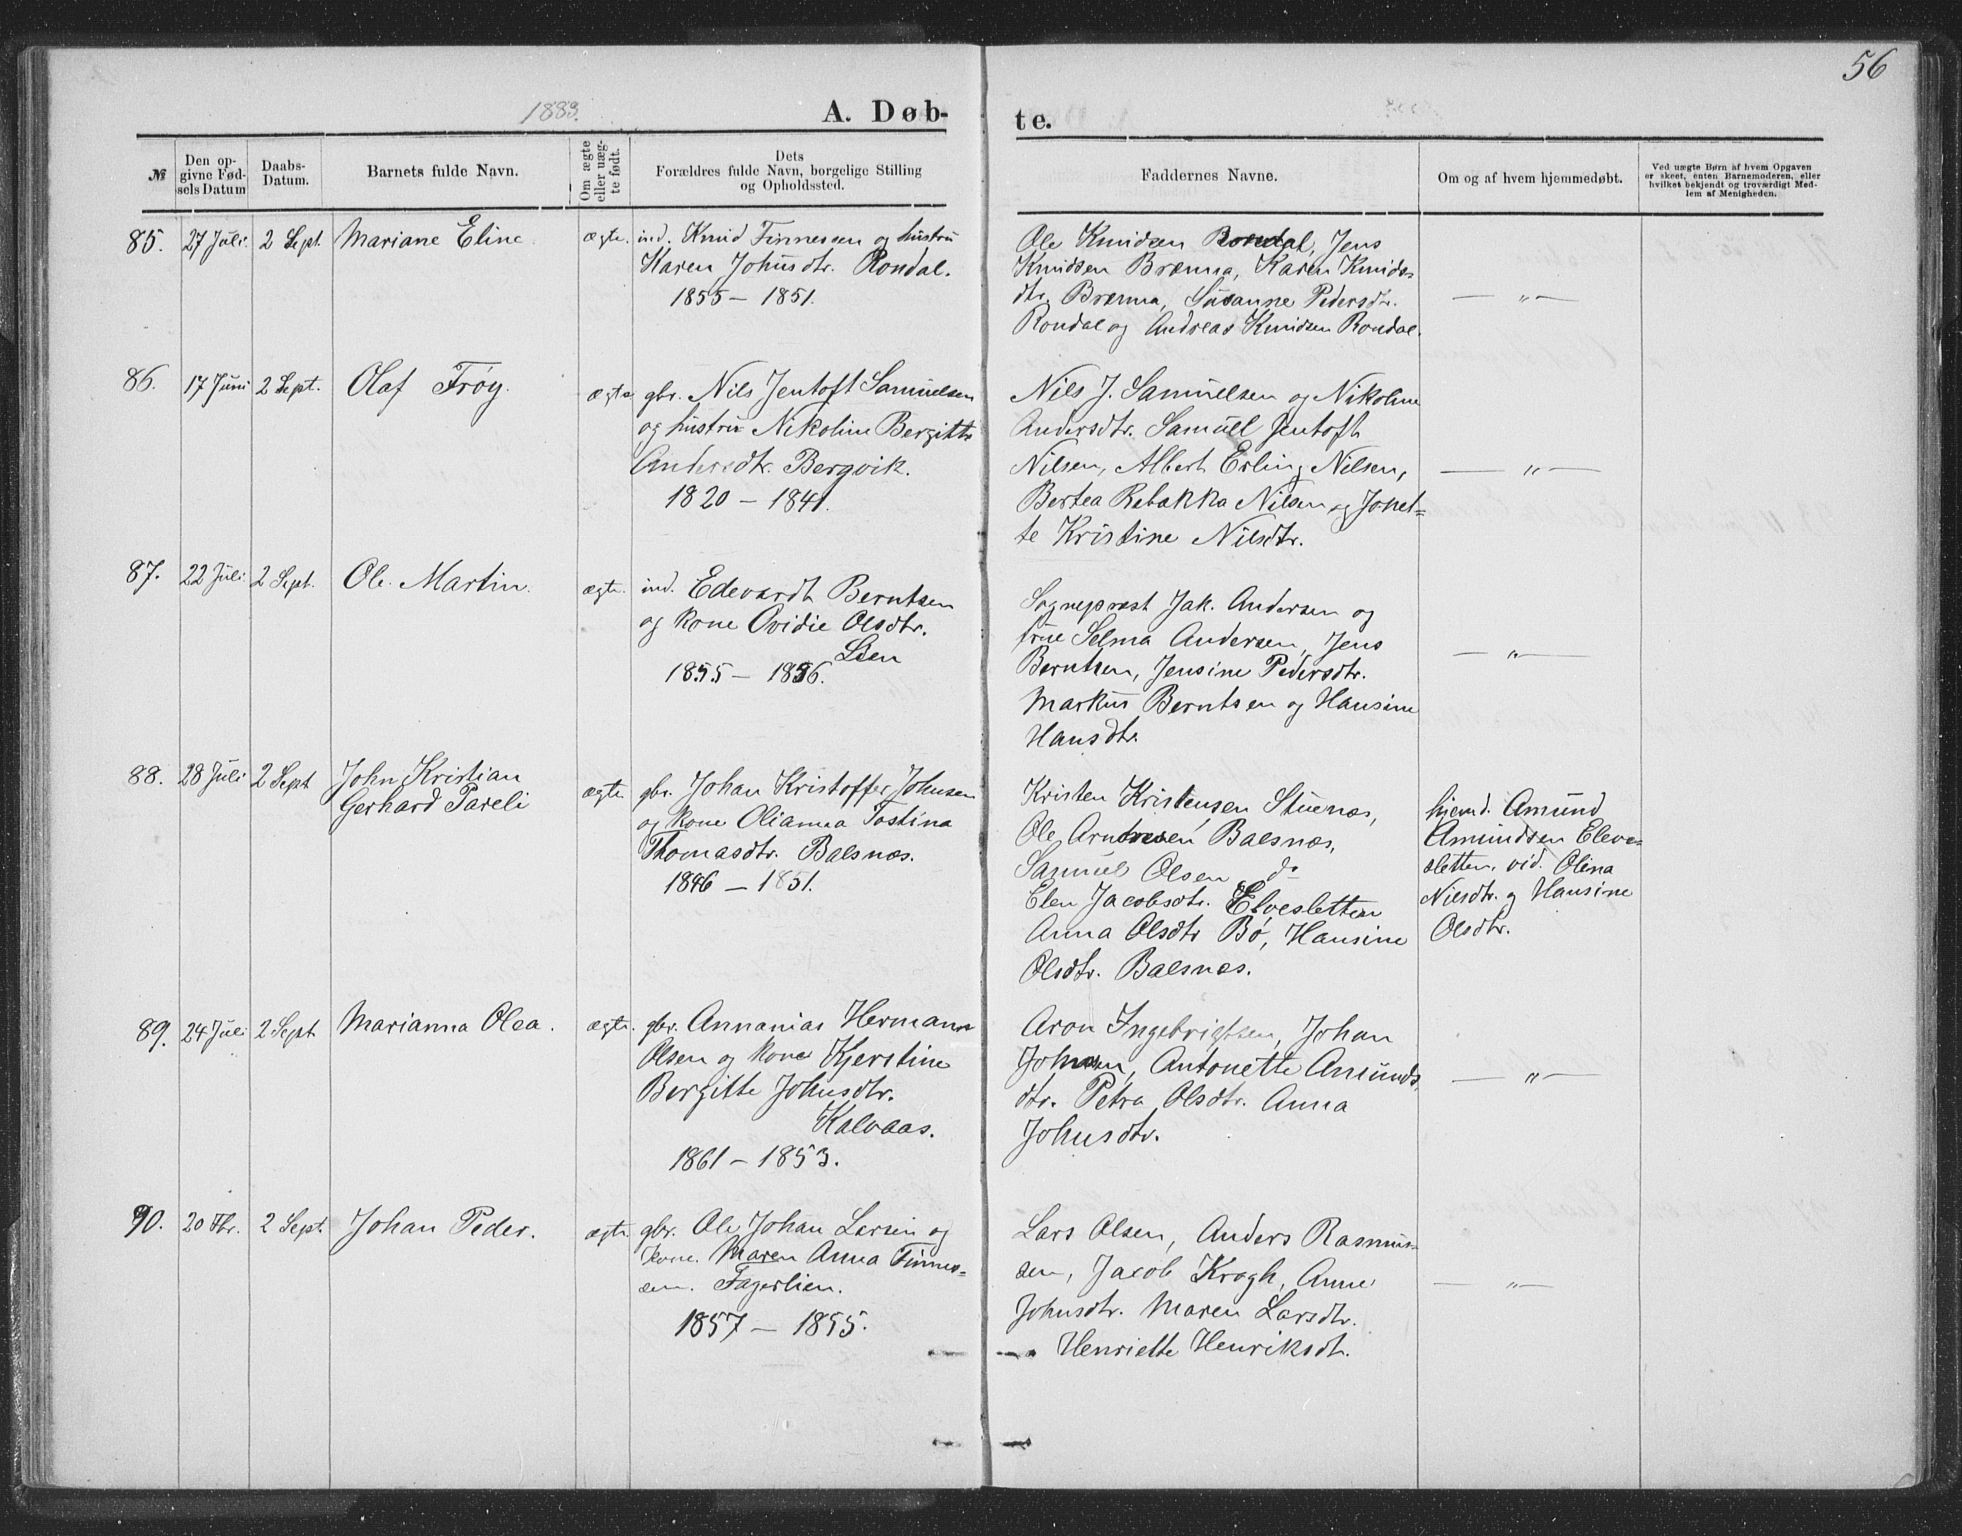 56
1883.
A. Døb-
te.
№
Den op-
givne Fød-
sels Datum
Daabs-
Datum.
Barnets fulde Navn.
Om ægte
eller uæg-
te født.
Dets
Forældres fulde Navn, borgelige Stilling
og Opholdssted.
Faddernes Navne.
Om og af hvem hjemmedøbt.
Ved uægte Børn af hvem Opgaven
er skeet, enten Barnemoderen, eller
hvilket bekjendt og troværdigt Med-
lem af Menigheden.
85. 27 Juli 2 Sept. Mariane Eline ægte. ind. Knud Finnessen og hustru
Karen Johnsdtr. Rondal.
1855 – 1851.
Ole Knudsen Rondal, Jens
Knudsen Brænna, Karen Knuds-
dtr. Brænna, Susanne Pedersdtr.
Rondal og Andreas Knudsen Rondal.
— „ —
86. 17 Juni 2 Sept. Olaf Frøy. ægte gbr. Nils Jentoft Samuelsen
og hustru Nikoline Bergitte
Andersdtr. Bergvik.
1820 – 1841.
Nils J. Samuelsen og Nikoline
Andersdtr. Samuel Jentoft
Nilsen, Albert Erling Nilsen,
Bertea Rebakka Nilsen og Jonet-
te Kristine Nilsdtr.
— „ —
87. 22 Juli 2 Sept. Ole Martin. ægte. ind. Edevardt Berntsen
og kone Ovidie Olsdtr.
Lien
1855 – 1856.
Sogneprest Jak. Andersen og
frue Selma Andersen, Jens
Berntsen, Jensine Pedersdtr.
Markus Berntsen og Hansine
Hansdtr.
— „ —
88. 28 Juli 2 Sept John Kristian
Gerhard Pareli
ægte gbr. Johan Kristoffer Johnsen
og kone Olianna Tostina
Thomasdtr. Balsnæs.
1846 – 1851.
Kristen Kristensen Stuenæs,
Ole Arntsen Balsnæs,
Samuel Olsen do
Elen Jacobsdtr. Elvesletten
Anna Olsdtr Bø, Hansine
Olsdtr. Balsnæs.
hjemd. Amund
Amundsen Elve-
sletten, vid. Olina
Nilsdtr. og Hansine
Olsdtr.
89. 24 Juli 2 Sept Marianna Olea. ægte. gbr. Annanias Herman
Olsen og kone Kjerstine
Bergitte Johnsdtr.
Kalvaas.
1861 – 1853.
Aron Ingebrigtsen, Johan
Johnsen, Antonette Amunds
dtr. Petra Olsdtr. Anna
Johnsdtr.
— „ —
90. 20 Fbr. 2 Sept. Johan Peder. ægte gbr. Ole Johan Larsen og
kone Maren Anna Finnes-
sen. Fagerlien.
1857 – 1855.
Lars Olsen, Anders Rasmus-
sen, Jacob Krogh, Anne
Johnsdtr. Maren Larsdtr.
Henriette Henriksdtr.
— „ —